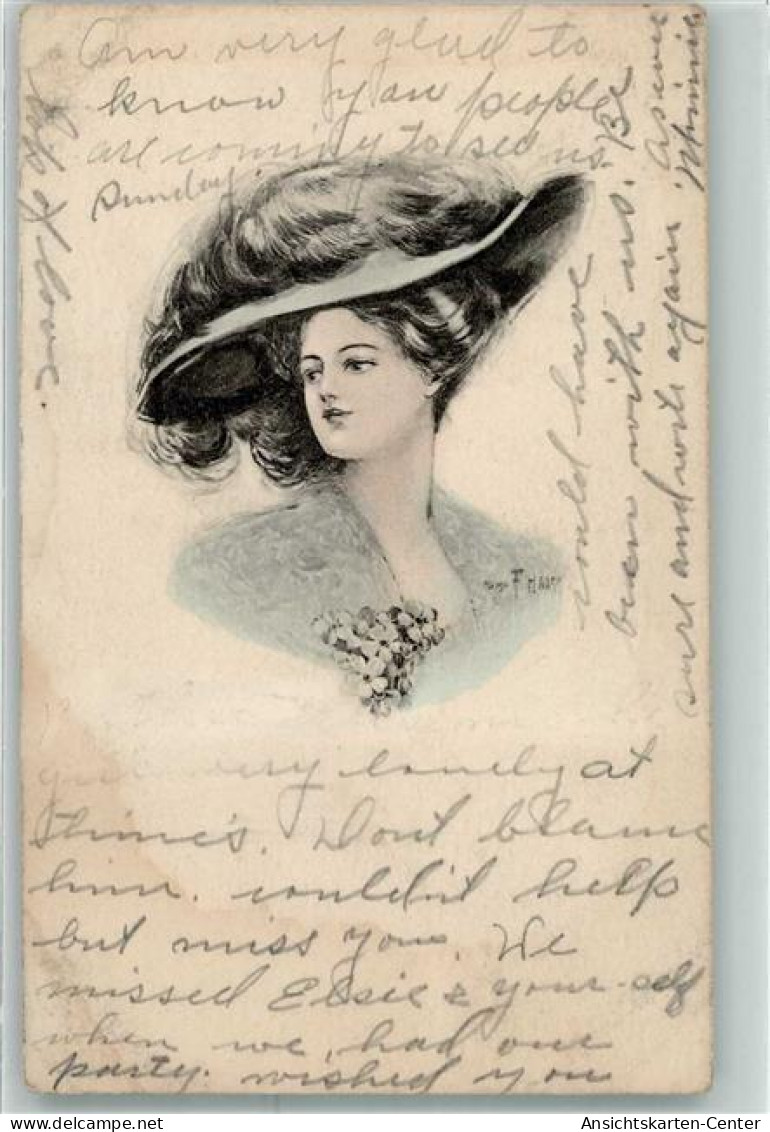 Am very glad to
know you people
are coming to see us
Sunday.
very lonely at
times. Dont blame
him. couldn't help
but miss you. We
missed Elsie & your-self
when we, had our
party. wished you
could have
been with us. Be
sure and write again
Minnie
lots of love.
delcampe.net
Ansichtskarten-Center